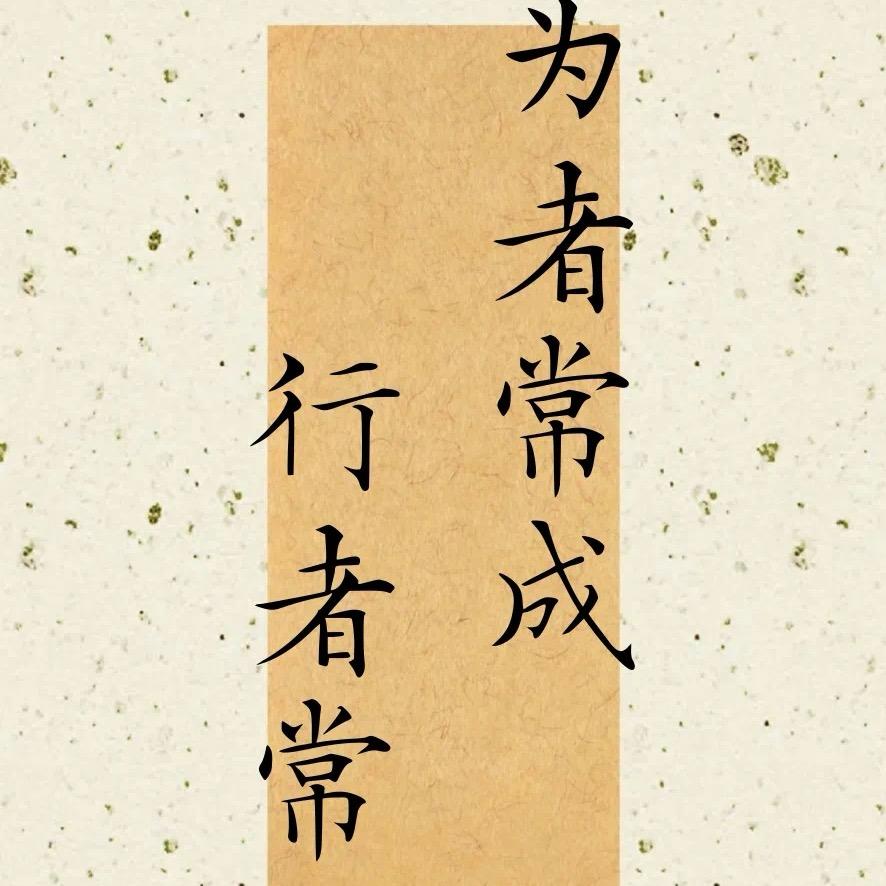 为者常成
行者常